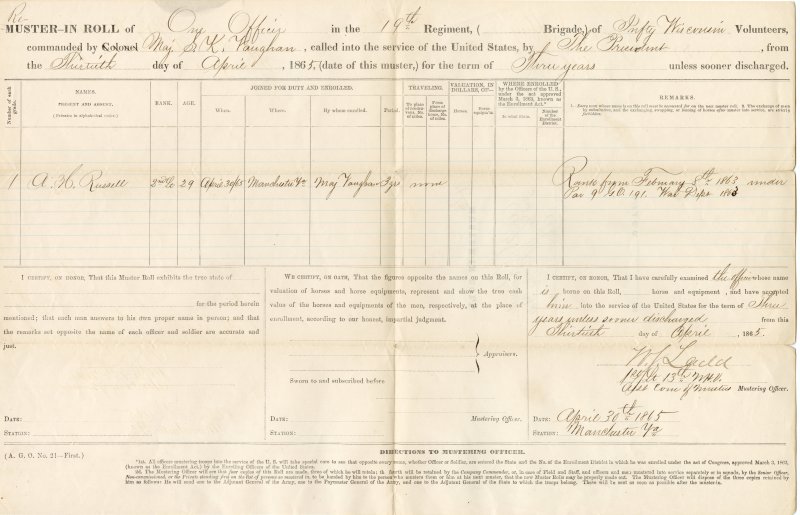 Re-
MUSTER-IN ROLL of One Officer in the 19th Regiment, ( Brigade,) of Infty Wisconsin Volunteers,
commanded by Colonel Maj S. K. Vaughan, called into the service of the United States, by The President, from
the Thirtieth day of April, 1865, (date of this muster,) for the term of Three years unless sooner discharged.
Number of each grade.
NAMES.
PRESENT AND ABSENT.
(Privates in alphabetical order.)
RANK.
AGE.
JOINED FOR DUTY AND ENROLLED.
When.
Where.
By whom enrolled.
Period.
TRAVELING.
To place of rendezvous, No. of miles.
From place of discharge home, No. of miles.
VALUATION, IN DOLLARS, OF—
Horses.
Horse equipm'ts.
WHERE ENROLLED
by the Officers of the U. S., under the act approved March 3, 1863, known as the Enrollment Act.*
In what State.
Number of the Enrollment District.
REMARKS.
1. Every man whose name is on this roll must be accounted for on the next muster roll. 2. The exchange of men by substitution, and the exchanging, swapping, or loaning of horses after muster into service, are strictly forbidden.
1 A. H. Russell 2nd Lt 29 April 30/65 Manchester Va Maj Vaughan 3 yrs none Rank from February 8th 1863 under
Par 9 G.O. 191. War Dept 1863
I CERTIFY, ON HONOR, That this Muster Roll exhibits the true state of
for the period herein
mentioned; that each man answers to his own proper name in person; and that
the remarks set opposite the name of each officer and soldier are accurate and
just.
DATE:
STATION:
WE CERTIFY, ON OATH, That the figures opposite the names on this Roll, for
valuation of horses and horse equipments, represent and show the true cash
value of the horses and equipments of the men, respectively, at the place of
enrollment, according to our honest, impartial judgment.
Appraisers.
Sworn to and subscribed before
Mustering Officer.
DATE:
STATION:
I CERTIFY, ON HONOR, That I have carefully examined the officer whose name
is borne on this Roll, horse and equipment, and have accepted
him into the service of the United States for the term of Three
years unless sooner discharged from this
Thirtieth day of April, 1865.
Ladd
13th N.H.V.
Asst Com of Musters Mustering Officer.
DATE: April 30th 1865
STATION: Manchester Va
(A. G. O. No. 21—First.)
DIRECTIONS TO MUSTERING OFFICER.